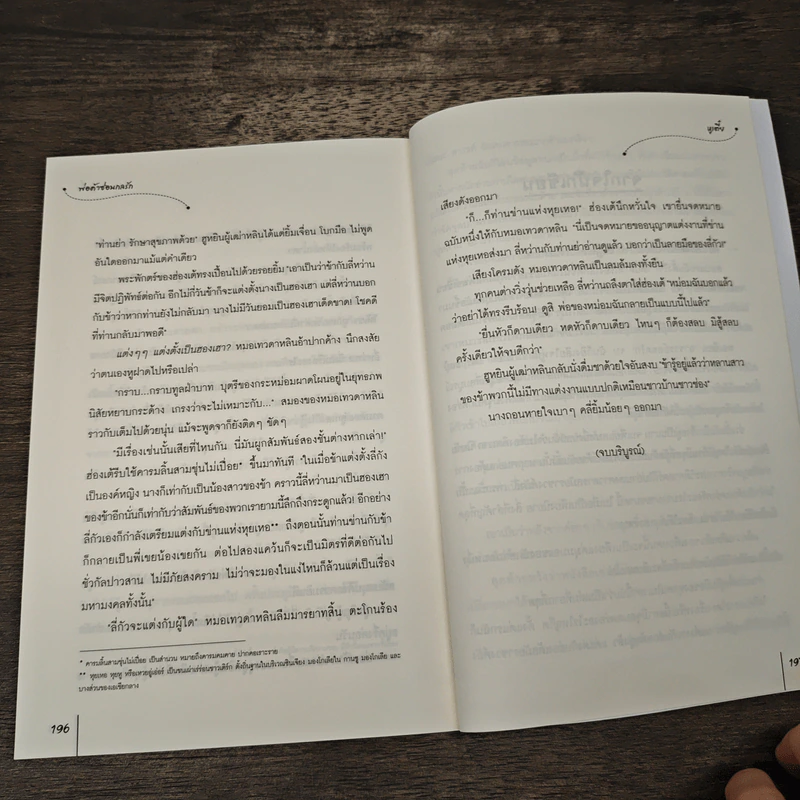 พ่อค้าซ่อนกลรัก
"ท่านย่า รักษาสุขภาพด้วย" ฮูหยินผู้เฒ่าหลินได้แต่ยิ้มเจื่อน โบกมือ ไม่พูด
อันใดออกมาแม้แต่คำเดียว
พระพักตร์ของฮ่องเต้ทรงเปื้อนไปด้วยรอยยิ้ม "เอาเป็นว่าข้ากับลี่หว่าน
มีจิตปฏิพัทธ์ต่อกัน อีกไม่กี่วันข้าก็จะแต่งตั้งนางเป็นฮองเฮา แต่ลี่หว่านบอก
กับข้าว่าหากท่านยังไม่กลับมา นางไม่มีวันยอมเป็นฮองเฮาเด็ดขาด! โชคดี
ที่ท่านกลับมาพอดี"
แต่งๆๆ แต่งตั้งเป็นฮองเฮา? หมอเทวดาหลินอ้าปากค้าง นึกสงสัย
ว่าตนเองหูฝาดไปหรือเปล่า
"กราบ...กราบทูลฝ่าบาท บุตรีของกระหม่อมผาดโผนอยู่ในยุทธภพ
นิสัยหยาบกระด้าง เกรงว่าจะไม่เหมาะกับ..." สมองของหมอเทวดาหลิน
ราวกับเต็มไปด้วยนุ่น แม้จะพูดจาก็ยังติดๆ ขัดๆ
"มีเรื่องเช่นนั้นเสียที่ไหนกัน นี่มันผูกสัมพันธ์สองชั้นต่างหากเล่า!"
ฮ่องเต้รีบใช้คารมลิ้นสามชุ่นไม่เปื่อย* ขึ้นมาทันที "ในเมื่อข้าแต่งตั้งลี่กัง
เป็นองค์หญิง นางก็เท่ากับเป็นน้องสาวของข้า คราวนี้ลี่หว่านมาเป็นฮองเฮา
ของข้าอีกนั่นก็เท่ากับว่าสัมพันธ์ของพวกเรายามนี้ลึกถึงกระดูกแล้ว! อีกอย่าง
ลี่กัวเองก็กำลังเตรียมแต่งกับข่านแห่งหุยเหอ** ถึงตอนนั้นท่านข่านกับข้า
ก็กลายเป็นพี่เขยน้องเขยกัน ต่อไปสองแคว้นก็จะเป็นมิตรที่ดีต่อกันไป
ชั่วกัลปาวสาน ไม่มีภัยสงคราม ไม่ว่าจะมองในแง่ไหนก็ล้วนแต่เป็นเรื่อง
มหามงคลทั้งนั้น"
"ลี่กัวจะแต่งกับผู้ใด" หมอเทวดาหลินลืมมารยาทสิ้น ตะโกนร้อง
* คารมลิ้นสามชุ่นไม่เปื่อย เป็นสำนวน หมายถึงคารมคมคาย ปากคอเราะราย
** หุยเหอ หุยหู หรือเหวยอูเอ่อร์ เป็นชนเผ่าเร่ร่อนชาวเติร์ก ตั้งถิ่นฐานในบริเวณซินเจียง มองโกเลียใน กานซู มองโกเลีย และ
บางส่วนของเอเชียกลาง
196
ลูเตี๋ย
เสียงดังออกมา
"ก็...ก็ท่านข่านแห่งหุยเหอ!" ฮ่องเต้นึกหวั่นใจ เขายื่นจดหมาย
ฉบับหนึ่งให้กับหมอเทวดาหลิน "นี่เป็นจดหมายขออนุญาตแต่งงานที่ข่าน
แห่งหุยเหอส่งมา ลี่หว่านกับท่านย่าอ่านดูแล้ว บอกว่าเป็นลายมือของลี่กัว!"
เสียงโครมดัง หมอเทวดาหลินเป็นลมล้มลงทั้งยืน
ทุกคนต่างวิ่งวุ่นช่วยเหลือ ลี่หว่านถลึงตาใส่ฮ่องเต้ "หม่อมฉันบอกแล้ว
ว่าอย่าได้ทรงรีบร้อน! ดูสิ พ่อของหม่อมฉันกลายเป็นแบบนี้ไปแล้ว"
"ยื่นหัวก็ดาบเดียว หดหัวก็ดาบเดียว ไหนๆ ก็ต้องสลบ มิสู้สลบ
ครั้งเดียวให้จบดีกว่า"
ฮูหยินผู้เฒ่าหลินกลับนั่งดื่มชาด้วยใจอันสงบ "ข้ารู้อยู่แล้วว่าหลานสาว
ของข้าพวกนี้ไม่มีทางแต่งงานแบบปกติเหมือนชาวบ้านชาวช่อง"
นางถอนหายใจเบาๆ คลี่ยิ้มน้อยๆ ออกมา
(จบบริบูรณ์)
197